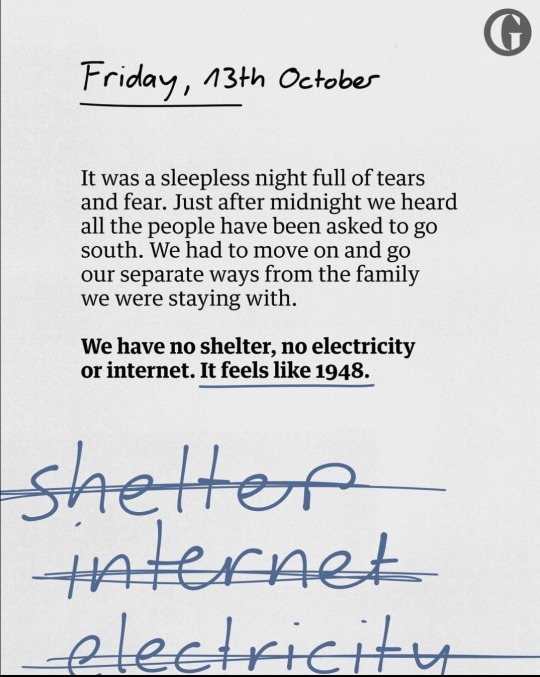 G
Friday, 13th October
It was a sleepless night full of tears
and fear. Just after midnight we heard
all the people have been asked to go
south. We had to move on and go
our separate ways from the family
we were staying with.
We have no shelter, no electricity
or internet. It feels like 1948.
shelter
internet
electricity